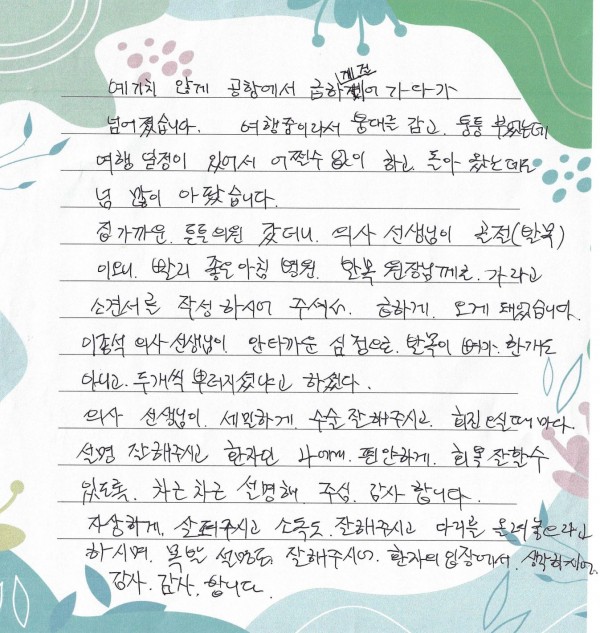 예기치 않게 공항에서 급하게 걷어 가다가
넘어졌습니다. 여행중이라서 붕대를 감고, 퉁퉁 부었는데
여행 일정이 있어서 어쩔수 없이 하고, 돌아 왔는데도
넘 많이 아팠습니다.
집가까운, 튼튼의원 갔더니, 의사 선생님이 골절(발목)
이오니, 빨리 좋은아침 병원, 발목 원장님께로, 가라고
소견서를 작성하시어 주셔서, 급하게, 오게 돼었습니다.
이종석 의사선생님이 안타까운 심정으로, 발목이 뼈가, 한개도
아니고, 두개씩 부러지셨냐고 하셨다.
의사 선생님이, 세밀하게, 수술잘해주시고, 회진 오실때마다,
설명 잘해주시고 환자인 나에게, 편안하게, 회복잘할수
있도록, 차근차근 설명해, 주심, 감사합니다.
자상하게, 살펴주시고 소독도, 잘해주시고 다리를 올려놓으라고
하시며, 목발 설명도, 잘해주시어, 환자의 입장에서, 생각하시어,
감사, 감사, 합니다.